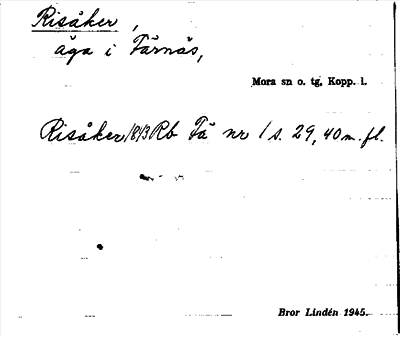 Risåker,
äga i Färnäs,
Mora sn o. tg, Kopp. l.
Risåker 1813 Rb Fä nr 1 s. 29, 40 m. fl.
Bror Lindén 1945.